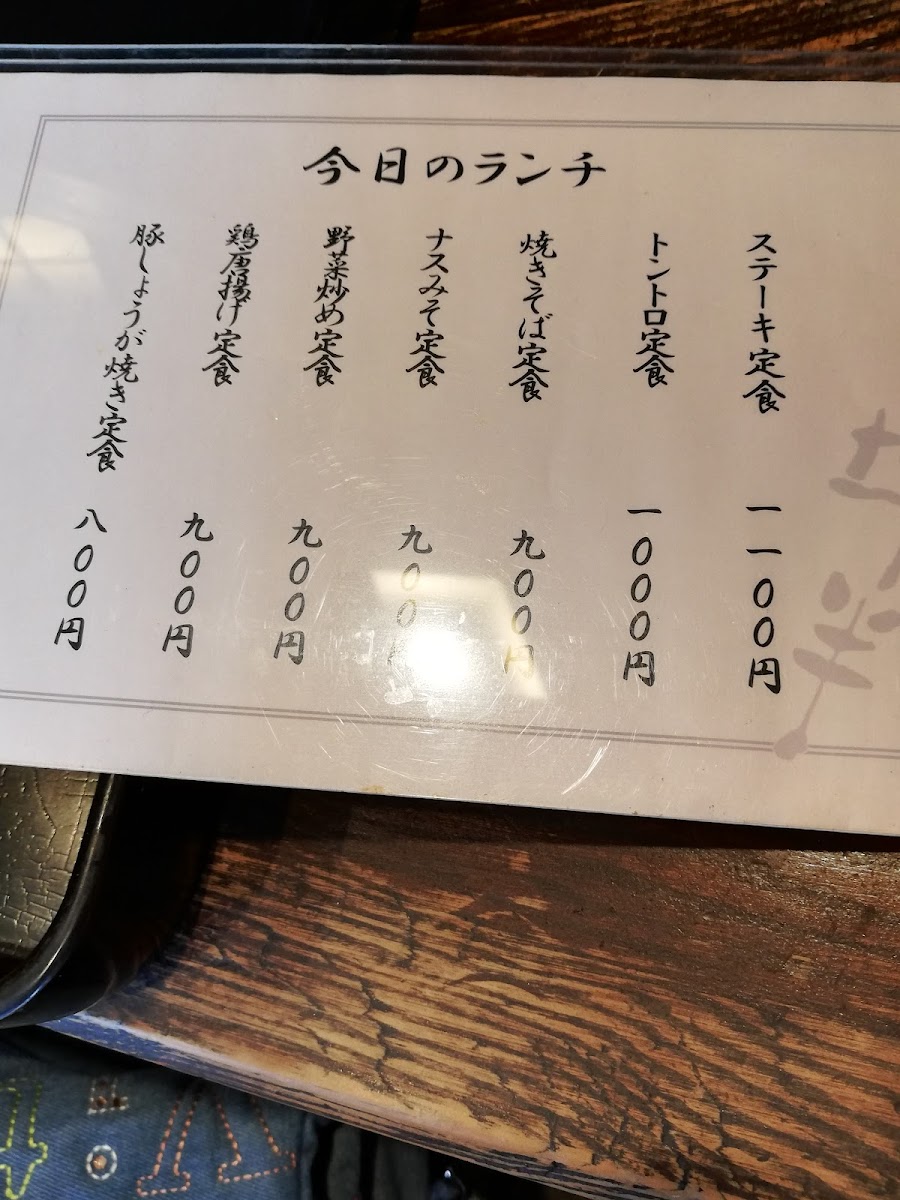 今日のランチ
ステーキ定食 一一〇〇円
トントロ定食 一〇〇〇円
焼きそば定食 九〇〇円
ナスみそ定食 九〇〇
野菜炒め定食 九〇〇円
鶏唐揚げ定食 九〇〇円
豚しょうが焼き定食 八〇〇円